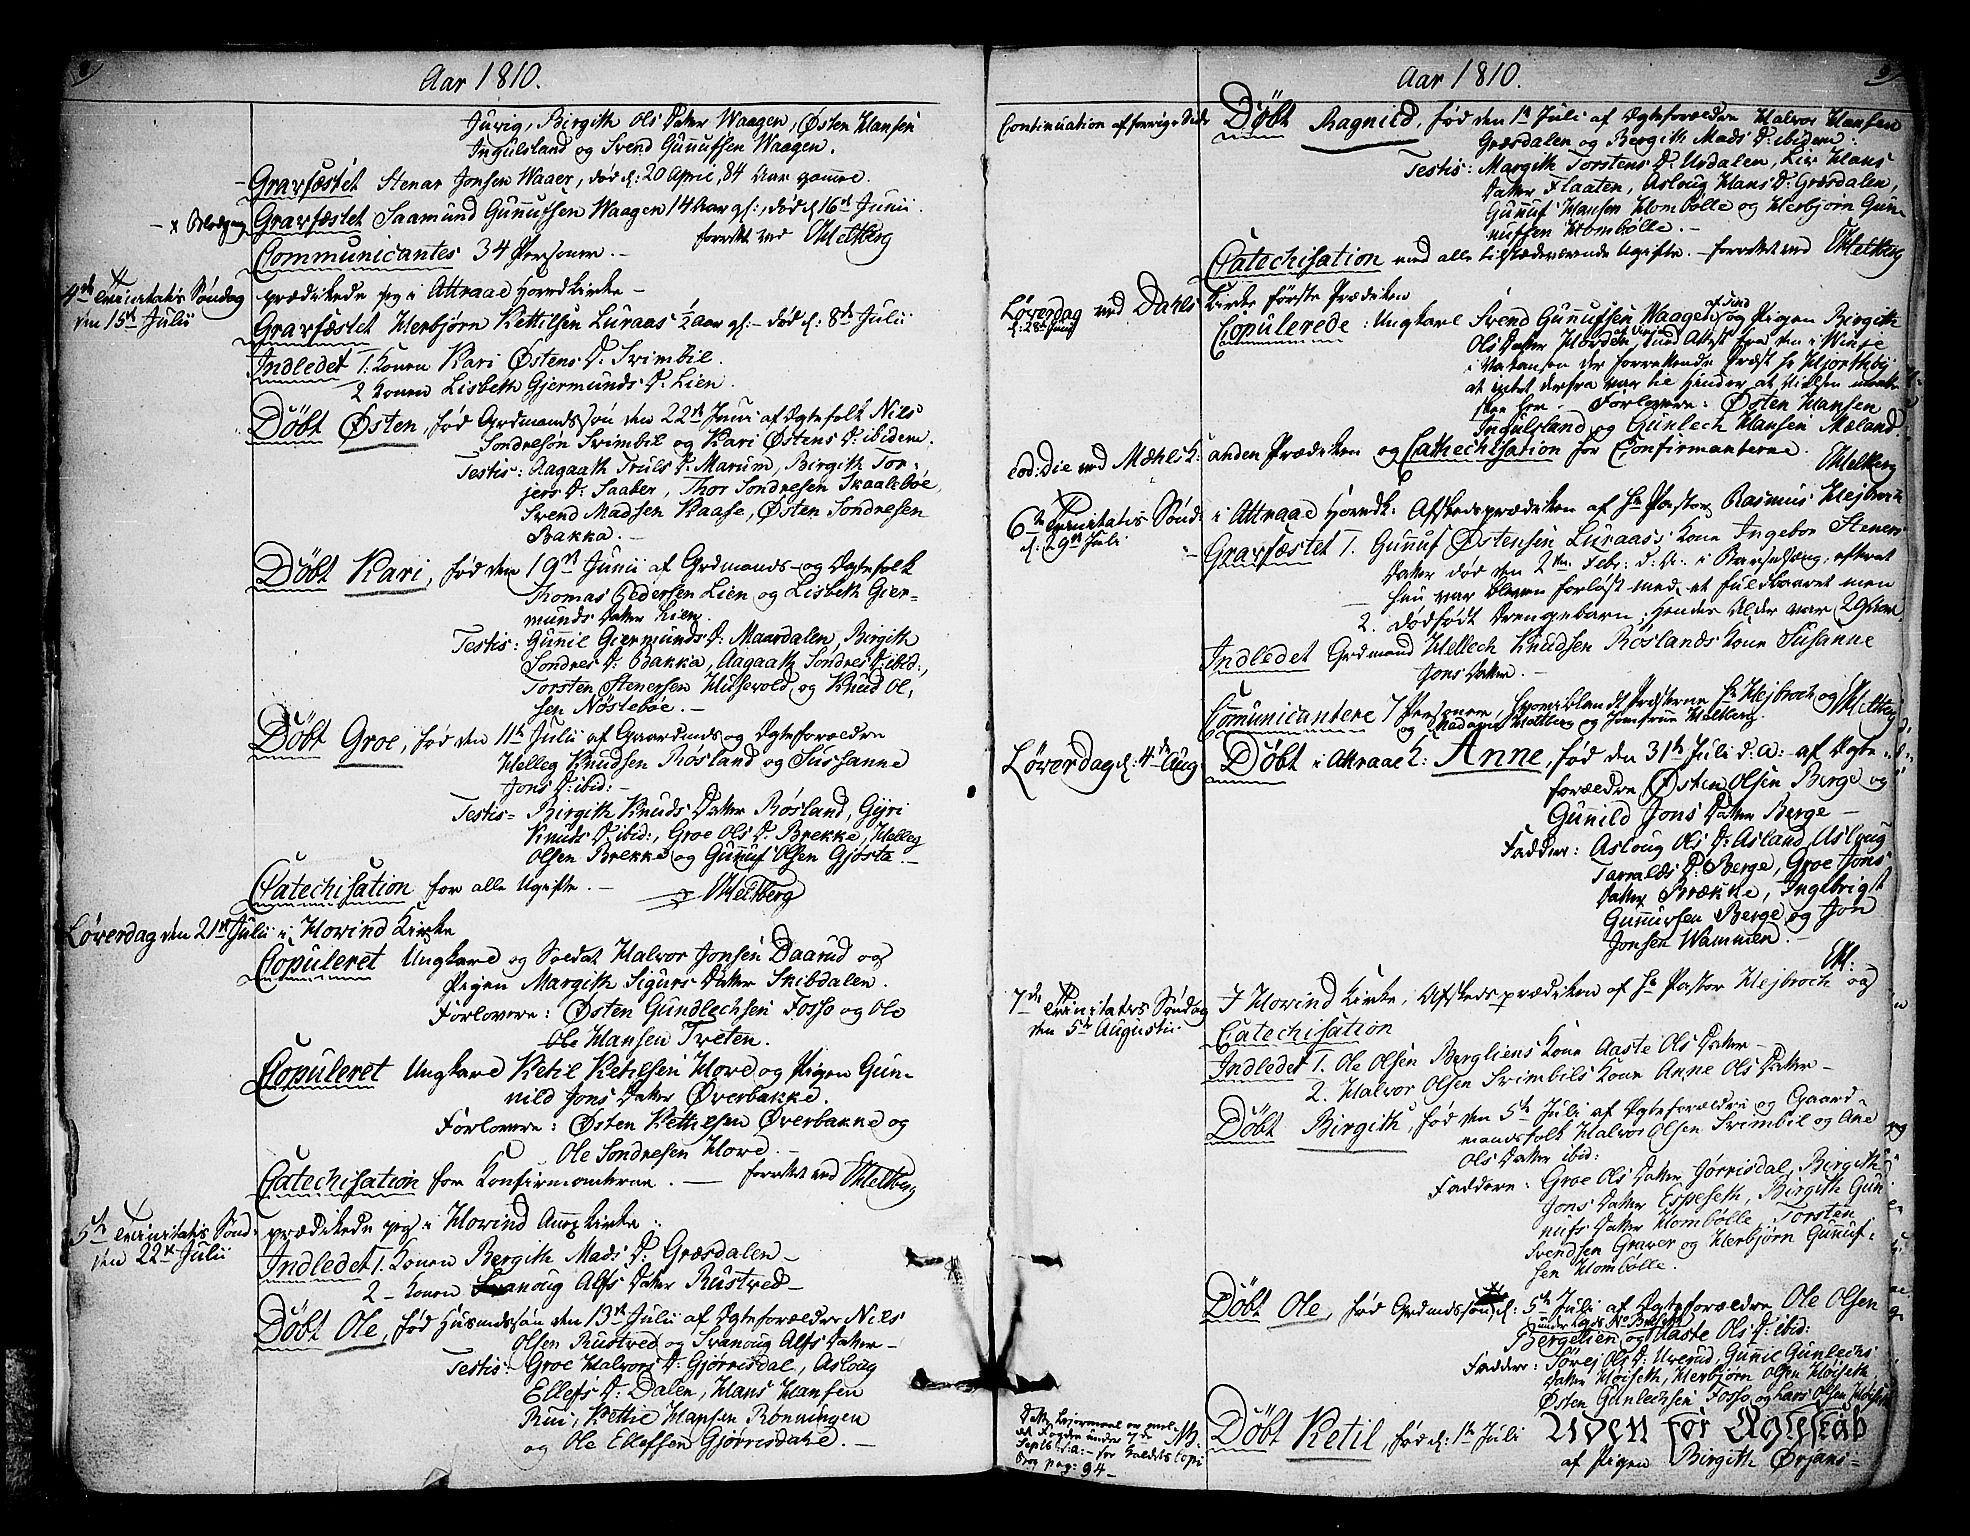 Aar 1810.
Juvig, Birgith Ols Dater Waagen, Østen Hansen
Ingulsland og Svend Gunnufsen Waagen.
Gravfæstet Stenar Jonsen Waaer, død d: 20 April, 84 Aar gammel.
Gravfæstet Saamund Gunnufsen Waagen 14 Aar gl:, død d 16de Junii.
forrettet ved OHeltberg
Communicantes 34 Personer.
4de Trinitatis Søndag
den 15de Julii
prædikede jeg i Attraae Hovedkirke –
Gravfæstet Herbjørn Kettilsen Luraas ½ Aar gl: – død d: 8de Julii
Indledet 1. Konen Kari Østens D. Svimbil.
2 Konen Lisbeth Gjermunds D. Lien.
Døbt Østen, fød Grdmandssøn den 22de Junii af Ægtefolk Nils
Sondresøn Svimbil og Kari Østens D. ibidem.
Testis: Aagaath Truls D. Marum, Birgith Tor-
jers D. Saaber, Thor Sondresen Skaalebøe,
Svend Madsen Kaase, Østen Sondresen
Bakka. –
Døbt Kari, fød den 19de Junii af Grdmands- og Ægtefolk
Thomas Pedersen Lien og Lisbeth Gier-
munds Dater Lien.
Testis: Gunnil Giermunds D: Maardalen, Birgith
Sondres D: Bakka, Aagaath Sondres D: ibid:,
Torsten Stenersen Hilsevold, og Knud Ol-
sen Nøstebøe. –
Døbt Groe, fød den 11te Julii af Gaardmds og Ægteforældre
Helleg Knudsen Røsland og Sussanne
Jons D: ibid: –
Testis = Birgith Knuds Dater Røsland, Gyri
Knuds D. ibid:, Groe Ols D. Brekke, Helleg
Olsen Brekke og Gunnuf Olsen Gjøsta. –
Catechisation for alle Ugifte. – OHeltberg
Løverdag den 21de Julii i Hovind Kirke
Copuleret Ungkarl og Soldat Halvor Jonsen Daarud og
Pigen Margith Sigurs Dater Skibdalen.
Forlovere: Østen Gundlechsen Fosso og Ole
Ole Hansen Tveten.
Copuleret Ungkarl Ketil Ketilsen Hove og Pigen Gun-
nild Jons Dater Øverbakke.
Forlovere: Østen Kettilsen Øverbakke og
Ole Sondresen Hove. –
Catechisation for Konfirmanterne. – forrettet ved OHeltberg
5te Trinitatis Sønd:
den 22de Julii
prædikede jeg i Hovind Anexkirke.
Indledet 1. Konen Bergith Mads D. Græsdalen –
2 – Konen Svanoug Alfs Dater Rustved –
Døbt Ole, fød Husmdssøn den 13de Julii af Ægteforældre Nils
Olsen Rustved og Svanoug Alfs Dater –
Testis: Groe Halvors D. Gjørrisdal, Asloug
Ellefs D: Dalen, Hans Hansen
Rui, Kettil Hansen Rønningen
og Ole Ellefsen Gjørrisdale. –
Aar 1810.
Continuation af forrige Side
Døbt Ragnild, fød den 1te Julii af Ægteforældre Halvor Hansen
Græsdalen og Bergith Mads D: ibidem.
Testis: Margith Torstens D. Urdalen, Liv Hans
Dater Flaaten, Asloug Hans D: Græsdalen,
Gunnuf Hansen Hombølle og Herbjørn Gun-
nufsen Hombølle. –
Catechisation med alle tilstædeværende Ugifte. – forrettet ved OHeltberg
Løverdag d: 28de Julii ved Dahls Kirke første Prædiken
Copulerede: Ungkarl Svend Gunnufsen Waagen og Pigen Birgith
Ols Dater
Forlovere: Østen Hansen
Ingulsland og Gunlech Hansen Mæland.
eod: die ved Mæhls K: anden Prædiken og Cathechisation for Confirmanterne. OHeltberg
6te Trinitatis Sønd:
d. 29de Juli
i Attraae Hovedk: Afskedsprædiken af Hr Pastor Rasmus Hejbroch
Gravfæstet 1. Gunnuf Østensen Luraas's Kone Ingebor Steners
Dater død den 2den Febr: d. A. i Barselsæng, efterat
hun var bleven forløst med et fuldbaaret men
2. dødfødt Drengebarn; hendes Alder var 29 Aar.
Indledet Grdmand Hellech Knudsen Røslands Kone Susanne
Jons Dater. –
Communicantere 7 Personer, hvoriblandt Præsterne Hr Hejbroch og OHeltberg
Madame Heltberg og Jomfrue Heltberg.
Løverdag d: 4de Aug: Døbt i Attraae K: Anne, fød den 31te Juli d. a: af Ægte-
forældre Østen Olsen Berge og
Gunild Jons Dater Berge –
Fadder: Asloug Ols D: Asland, Asloug
Tarralds D. Berge, Groe Jons
Dater Brække, Ingebrigt
Gunnursen Berge og Jon
Jonsen Wammen. –
OH:
7de Trinitatis Søndag
den 5te Augustii
I Hovind Kirke, Afskedsprædiken af Hr Pastor Hejbroch og
Catechisation
Indledet 1. Ole Olsen Bergliens Kone Aaste Ols Dater –
2. Halvor Olsen Svimbils Kone Anne Ols Dater –
Døbt Birgith, fød den 5te Juli af Ægteforældre og Gaard-
mandsfolk Halvor Olsen Svimbil og Ane
Ols Dater ibid:
Faddere: Groe Ols Dater Jørrisdal, Birgith
Jons Dater Espeseth, Birgith Gun-
nufs Dater Hombølle, Torsten
Svendsen Graver og Herbjørn Gunnuf-
sen Hombølle.
Døbt Ole, fød Grdmdssøn d: 5te Juli af Ægteforældre Ole Olsen
Bergelien og Aaste Ols D: ibid:
Faddere: Sørej Ols D: Uverud, Gunnil Gunlechs
Dater Høiseth, Herbjørn Olsen Høiseth
Østen Gunlechsen Fosso og Lars Olsen Høiseth
NB. Døbt Ketil, fød d: 1te Juli Uden for Ægteskab
af Pigen Birgith Ørjans-
pag: 94 –